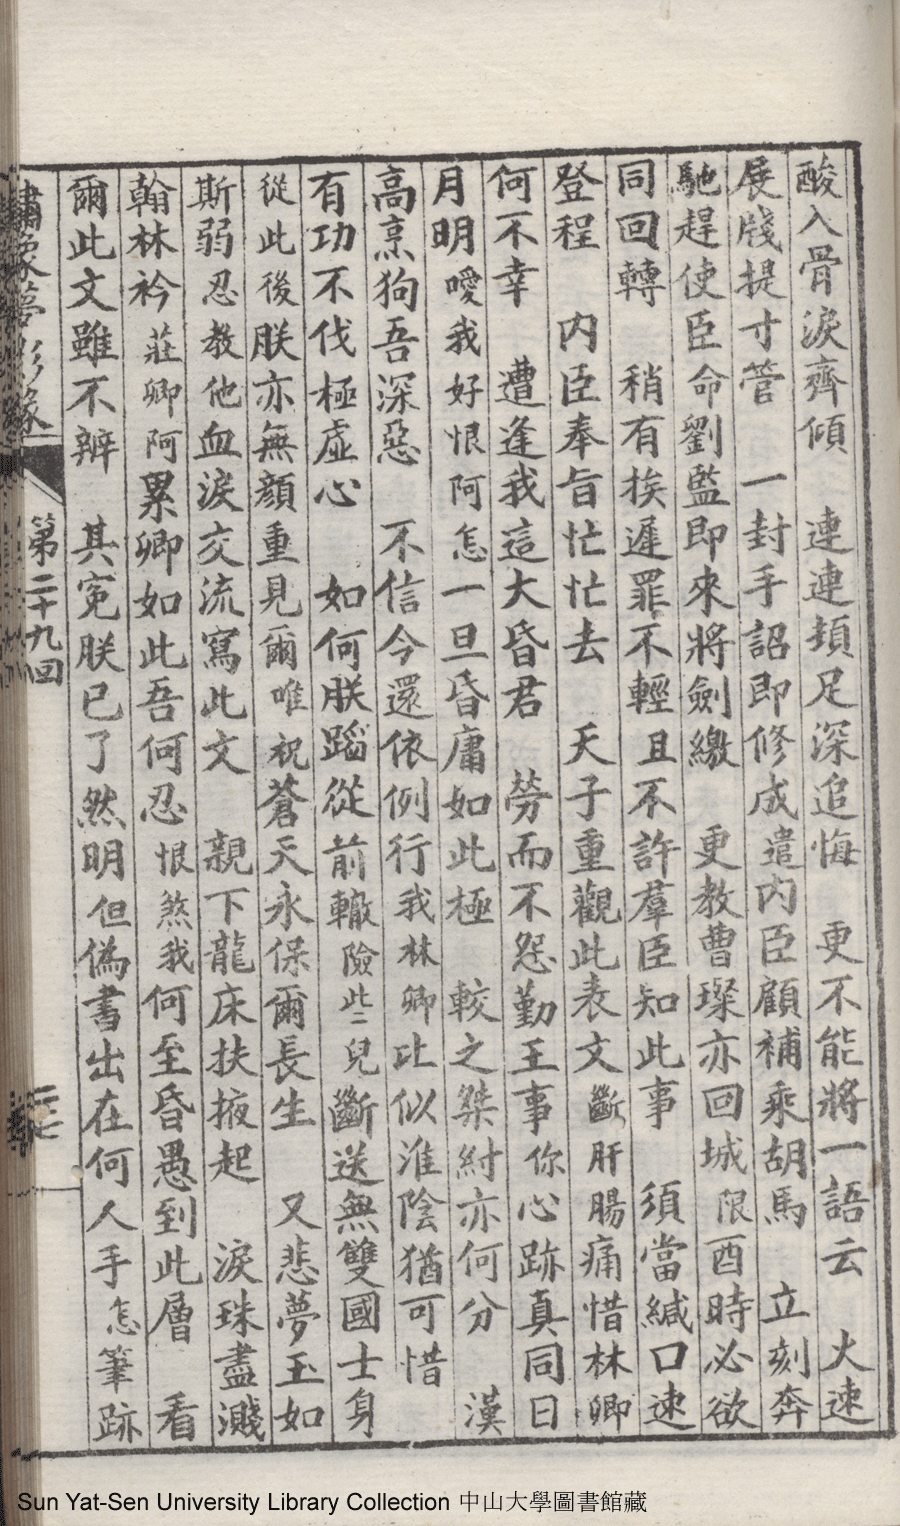 酸入骨淚齊傾　連連頓足深追悔　更不能將一語云　火速
展牋提寸管　一封手詔即修成遣内臣顧補乘胡馬　立刻奔
馳趕使臣命劉監即來將劍繳　更教曹璨亦回城限酉時必欲
同回轉　稍有挨遲罪不輕且不許羣臣知此事　須當緘口速
登程　内臣奉旨忙忙去　天子重觀此表文斷肝腸痛惜林卿
何不幸　遭逢我這大昏君　勞而不怨勤王事你心跡真同日
月明噯我好恨阿怎一旦昏庸如此極　較之桀紂亦何分　漢
高烹狗吾深惡　不信今還依例行我林卿比似淮陰猶可惜
有功不伐極虛心　如何朕蹈從前轍險些兒斷送無雙國士身
從此後朕亦無顏重見爾唯祝蒼天永保爾長生　又悲夢玉如
斯弱忍教他血淚交流寫此文　親下龍床扶掖起　淚珠盡濺
翰林衿莊卿阿累卿如此吾何忍恨煞我何至昏愚到此層　看
爾此文雖不辨　其冤朕已了然明但偽書出在何人手怎筆跡
繡像夢影緣　第二十九回
Sun Yat-Sen University Library Collection 中山大學圖書館藏